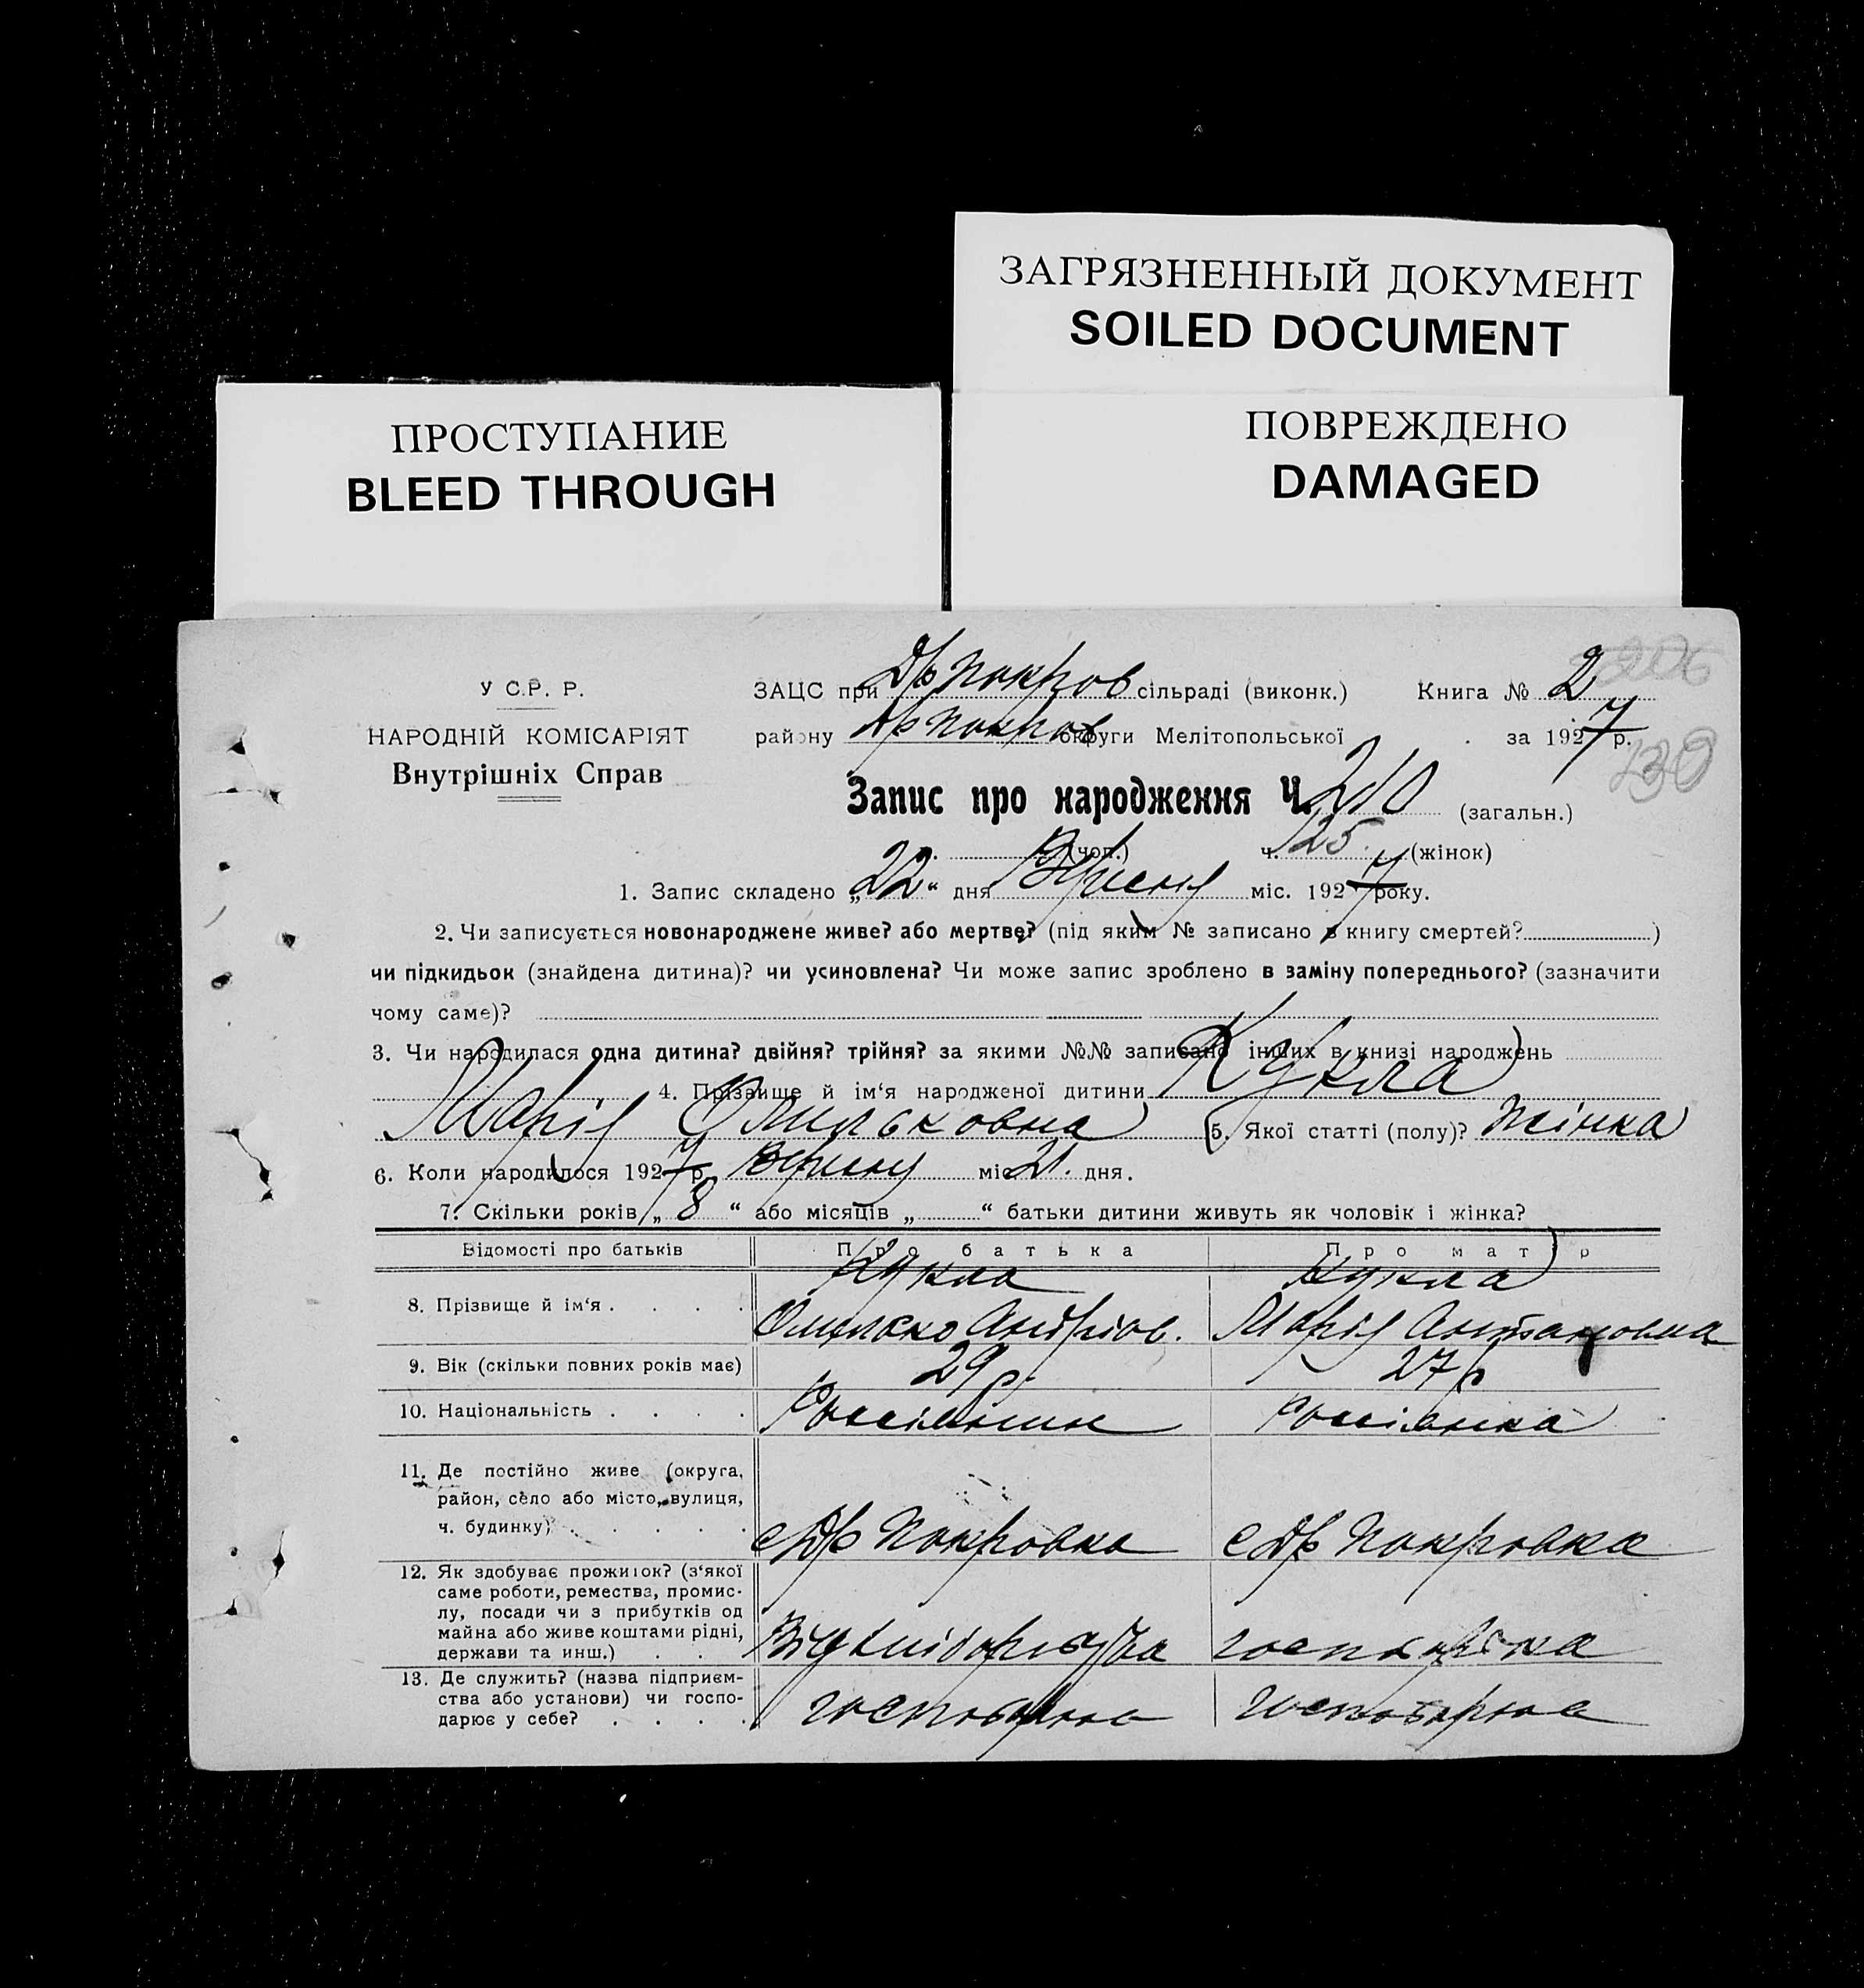 ЗАГРЯЗНЕННЫЙ ДОКУМЕНТ
SOILED DOCUMENT
ПРОСТУПАНИЕ
BLEED THROUGH
ПОВРЕЖДЕНО
DAMAGED
У С.Р. Р.
НАРОДНІЙ КОМІСАРІЯТ
Внутрішніх Справ
ЗАЦС при Др Покров сільраді (виконк.) Книга № 2
району Др Покров округи Мелітопольської за 1927 р.
130
Запис про народження Ч. 210 (загальн.)
ч. (чол.) ч. 125 (жінок)
1. Запис складено „22“ дня Вересну міс. 1927 року.
2. Чи записується новонароджене живе? або мертве? (під яким № записано в книгу смертей? )
чи підкидьок (знайдена дитина)? чи усиновлена? Чи може запис зроблено в заміну попереднього? (зазначити
чому саме)?
3. Чи народилася одна дитина? двійня? трійня? за якими №№ записано інших в книзі народжень
4. Прізвище й ім‘я народженої дитини Кукла
Марія Омельковна 5. Якої статті (полу)? Жінка
6. Коли народилося 1927 р. Вересну міс 21. дня.
7. Скільки років „ 8 “ або місяців „ “ батьки дитини живуть як чоловік і жінка?
Відомості про батьків Про батька Про матір
8. Прізвище й ім‘я . . . . Кукла Омелько Андріов. Кукла Марія Антановна
9. Вік (скільки повних років має) 29 р. 27 р
10. Національність . . . . Россіянин Россіянка
11. Де постійно живе (округа,
район, село або місто, вулиця,
ч. будинку) . . . . . с Др Покровка с Др Покровка
12. Як здобуває прожиток? (з‘якої
саме роботи, ремества, промис-
лу, посади чи з прибутків од
майна або живе коштами рідні,
держави та инш.) . . . господарка
13. Де служить? (назва підприєм-
ства або установи) чи госпо-
дарює у себе? . . . . господарює господарює